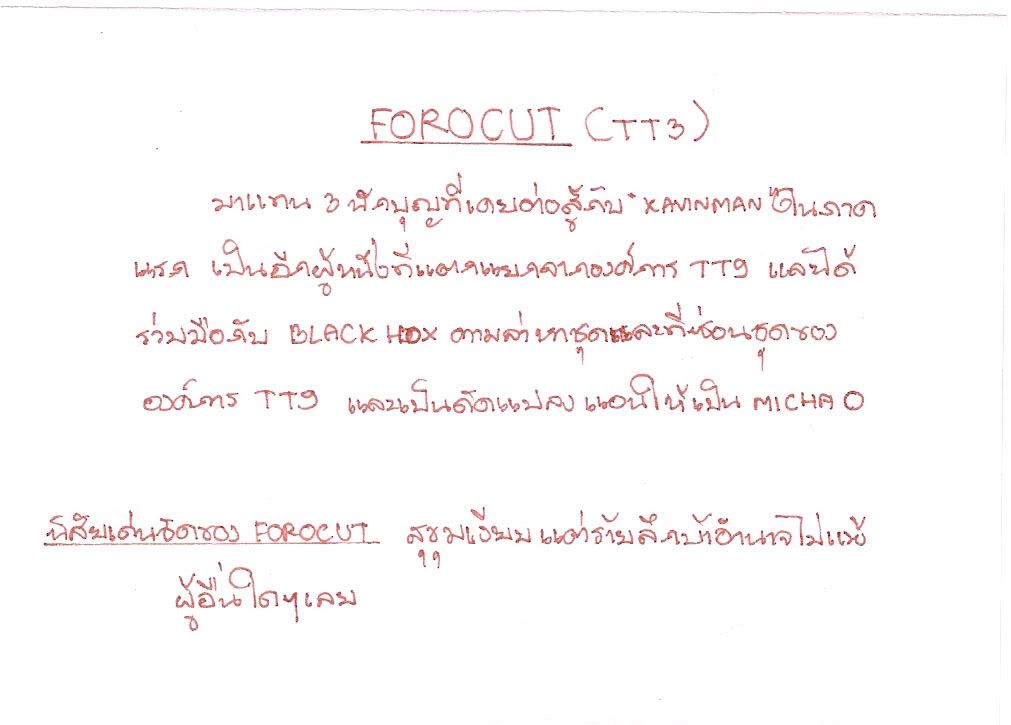 FOROCUT (TT3)
มาแทน 3 นักบุญที่เคยต่อสู้กับ "KAVINMAN" ในภาค
แรก เป็นอีกผู้หนึ่งที่แตกแยกจากองค์การ TT9 และได้
ร่วมมือกับ BLACK HOX ตามล่าหาชุดและที่ซ่อนชุดของ
องค์การ TT9 และเป็นดัดแปลง แอนให้เป็น MICHA O
นิสัยเด่นชัดของ FOROCUT สุขุมเงียบแต่ร้ายลึกบ้าอำนาจไม่แพ้
ผู้อื่นใดๆเลย